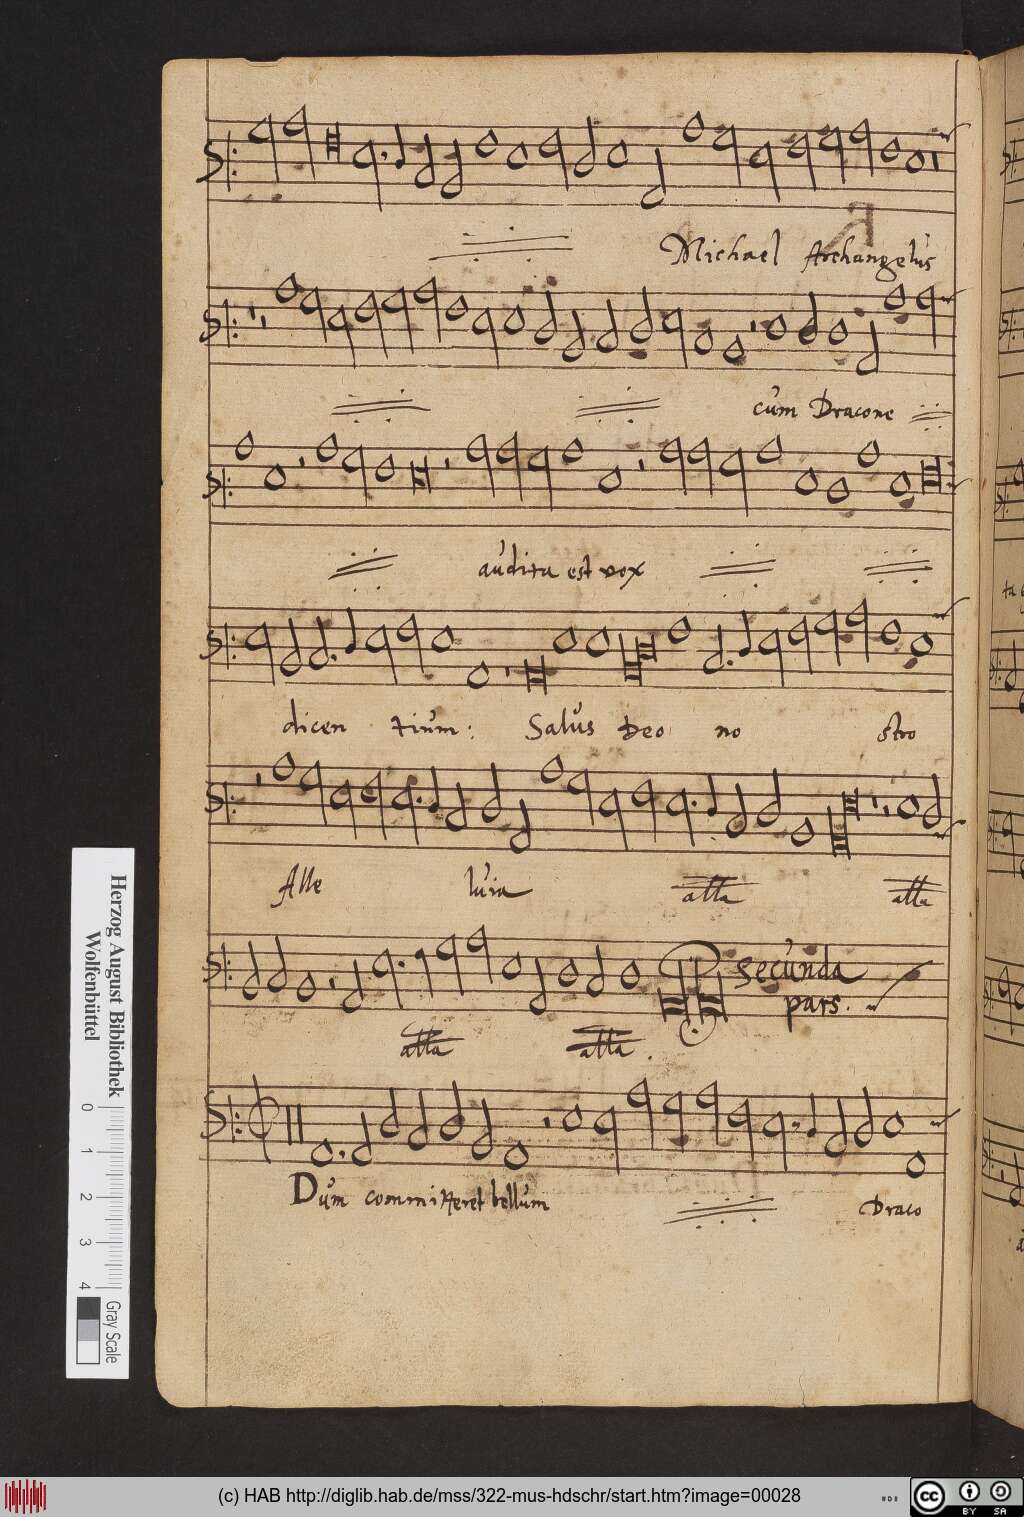 Michael Archangelus
cum Dracone
audita est vox
dicen tium: Salus Deo no stro
Alle luia alla alla
Secunda
pars.
alla alla.
Dum committeret bellum Draco
Herzog August Bibliothek
Wolfenbüttel
0 1 2 3 4 Gray Scale
(c) HAB http://diglib.hab.de/mss/322-mus-hdschr/start.htm?image=00028
cc BY SA